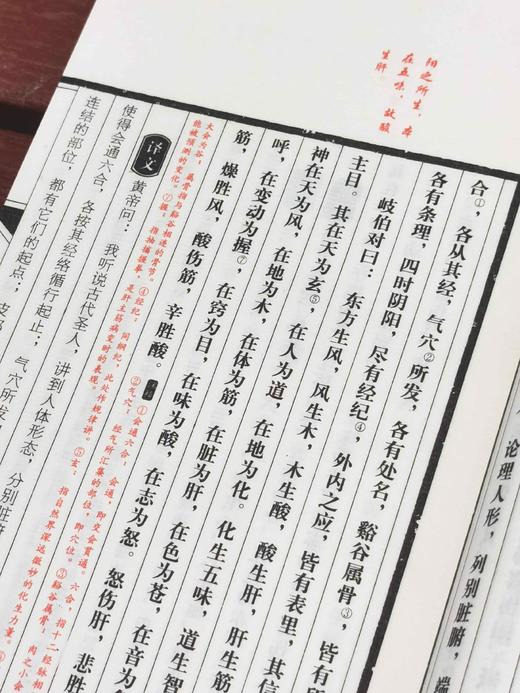 论理人形，列别脏腑，端
阴之所生，本
在五味，故酸
生肝
合①，各从其经，气穴②所发，各有处名，谿谷属骨③，皆有所
各有条理，四时阴阳，尽有经纪④，外内之应，皆有表里，其信
岐伯对曰：东方生风，风生木，木生酸，酸生肝，肝生筋
主目。其在天为玄⑤，在人为道，在地为化。化生五味，道生智
神在天为风，在地为木，在体为筋，在脏为肝，在色为苍，在音为
呼，在变动为握⑦，在窍为目，在味为酸，在志为怒。怒伤肝，悲胜
筋，燥胜风，酸伤筋，辛胜酸。
①会通六合：会通，即交会贯通。六合，指十二经脉相
②气穴：经气所汇聚的部位，即穴位。③谿谷属骨：肉之小会
大会为谷；属骨指与谿谷相连的骨节。④经纪：同纲纪，此处作规律讲。⑤玄：指自然界深远微妙的化生力量。
能被预测的变化。⑦握：指抽搐握拳，是肝主筋病变时的表现。
译文 黄帝问：我听说古代圣人，讲到人体形态，分别脏腑
使得会通六合，各按其经络循行起止；气穴所发
连结的部位，都有它们的起点；